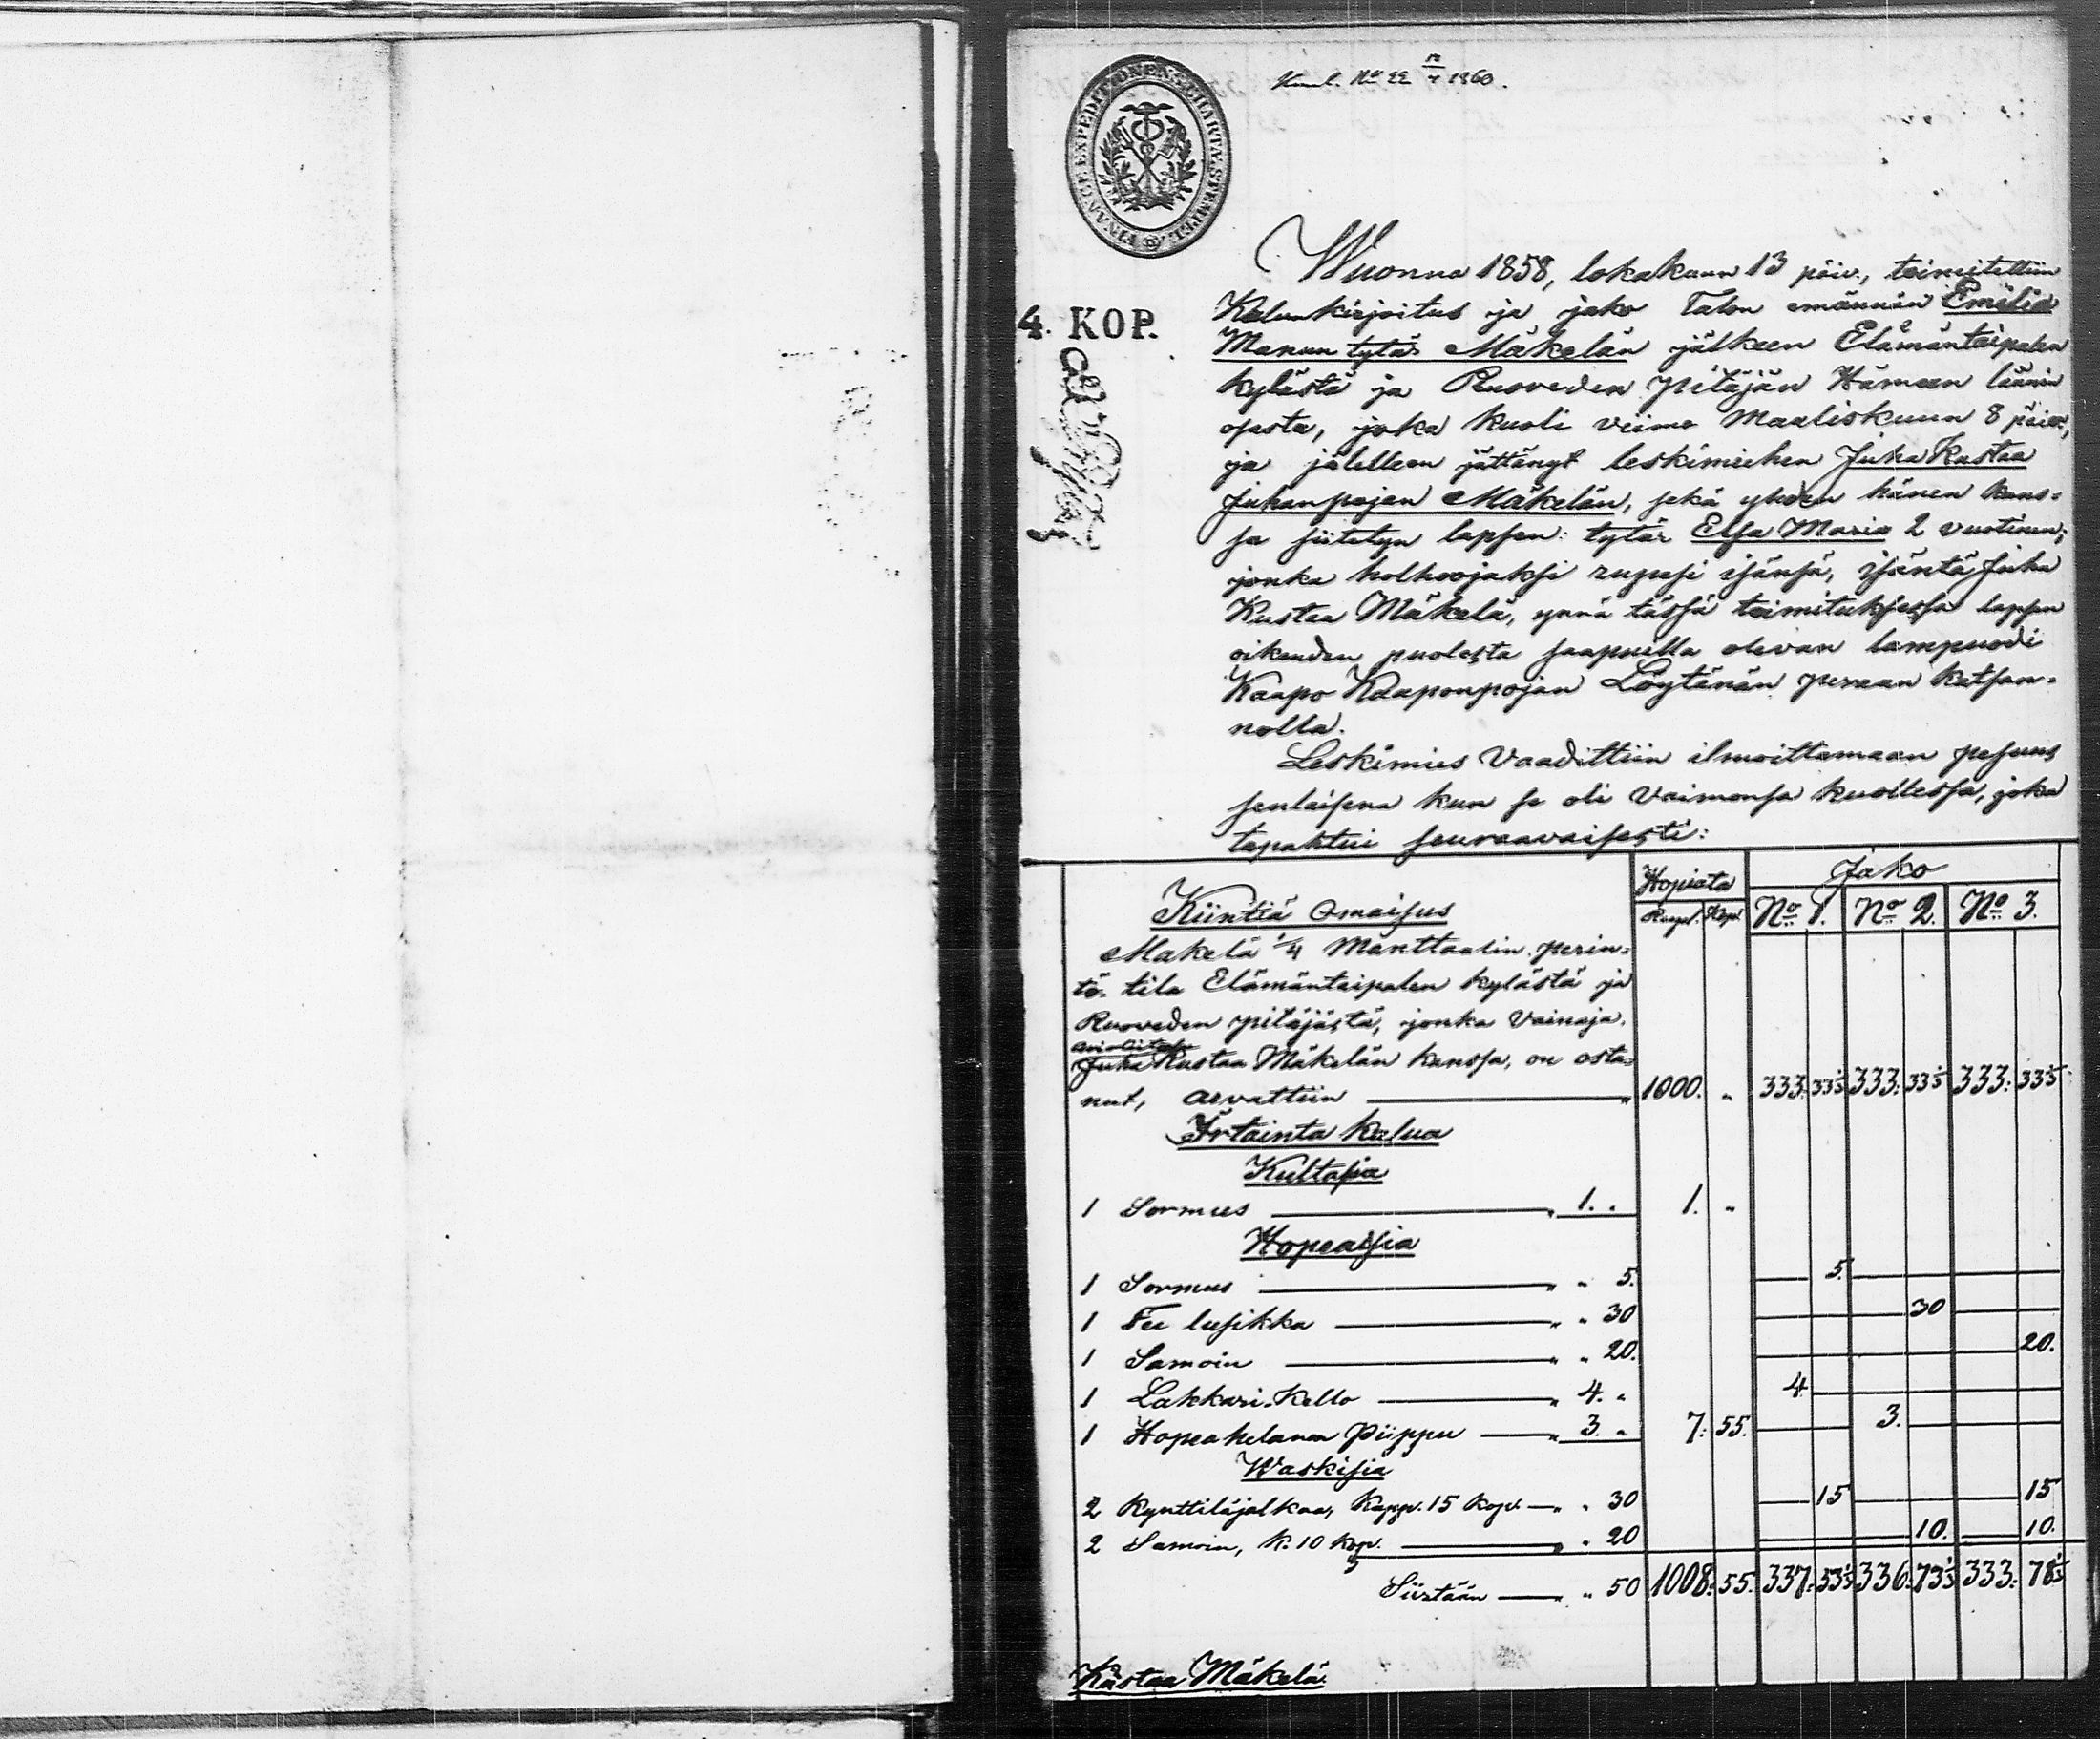 No 22 1860.
FINANCE EXPEDITIONENS CHARTÆ STEMPEL
4. KOP.
Wuonna 1858, lokakuun 13 päiv., toimitettiin
Kalunkirjoitus ja jako Talon emännän Emilia
Manun tytär Mäkelän jälkeen Elämäntaipalen
kylästä ja Ruoveden pitäjän Hämeen läänin
osasta, joka kuoli viime Maaliskuun 8 päiv.,
ja jälelleen jättänyt leskimiehen Juha Kustaa
Juhanpojan Mäkelän, sekä yhden hänen kans-
sa siitetyn lapsen: tytär Elsa Maria 2 vuotinen;
jonka holhoojaksi rupesi isänsä, isäntä Juha
Kustaa Mäkelä, ynnä tässä toimituksessa lapsen
oikeuden puolesta saapuilla olevan lampuodi
Kaapo Kaaponpojan Löytänän peraan katson-
nolla.
Leskimies vaadittiin ilmoittamaan pesuns
senlaisena kun se oli vaimonsa kuollessa, joka
tapahtui seuraavaisesti:
Hopiata Jako
Kiintiä Omaisus Rupl. Kop. No 1. No 2. No 3.
Mäkelä 1/4 Manttaalin perin-
tö-tila Elämäntaipalen kylästä ja
Ruoveden pitäjästä, jonka vainaja,
Juha Kustaa Mäkelän kanssa, on osta-
nut, arvattiin " 1000. " 333: 33 1/3 333: 33 1/3 333: 33 1/3
Irtainta kalua
Kultasia
1 Sormus " 1. " 1. "
Hopeassia
1 Sormus " " 5. 5.
1 Tee lusikka " " 30 30
1 Samoin " " 20. 20.
1 Lakkari-Kello " 4. " 4
1 Hopeahelanen Piippu " 3. " 7: 55. 3.
Waskisia
2 Kynttiläjalkaa, Kapp. 15 kop. " " 30 15 15
2 Samoin, k. 10 kop. " " 20 10. 10.
Siirtään " " 50 1008: 55. 337: 53 1/3 336: 73 1/3 333: 78 1/3
Kustaa Mäkelä